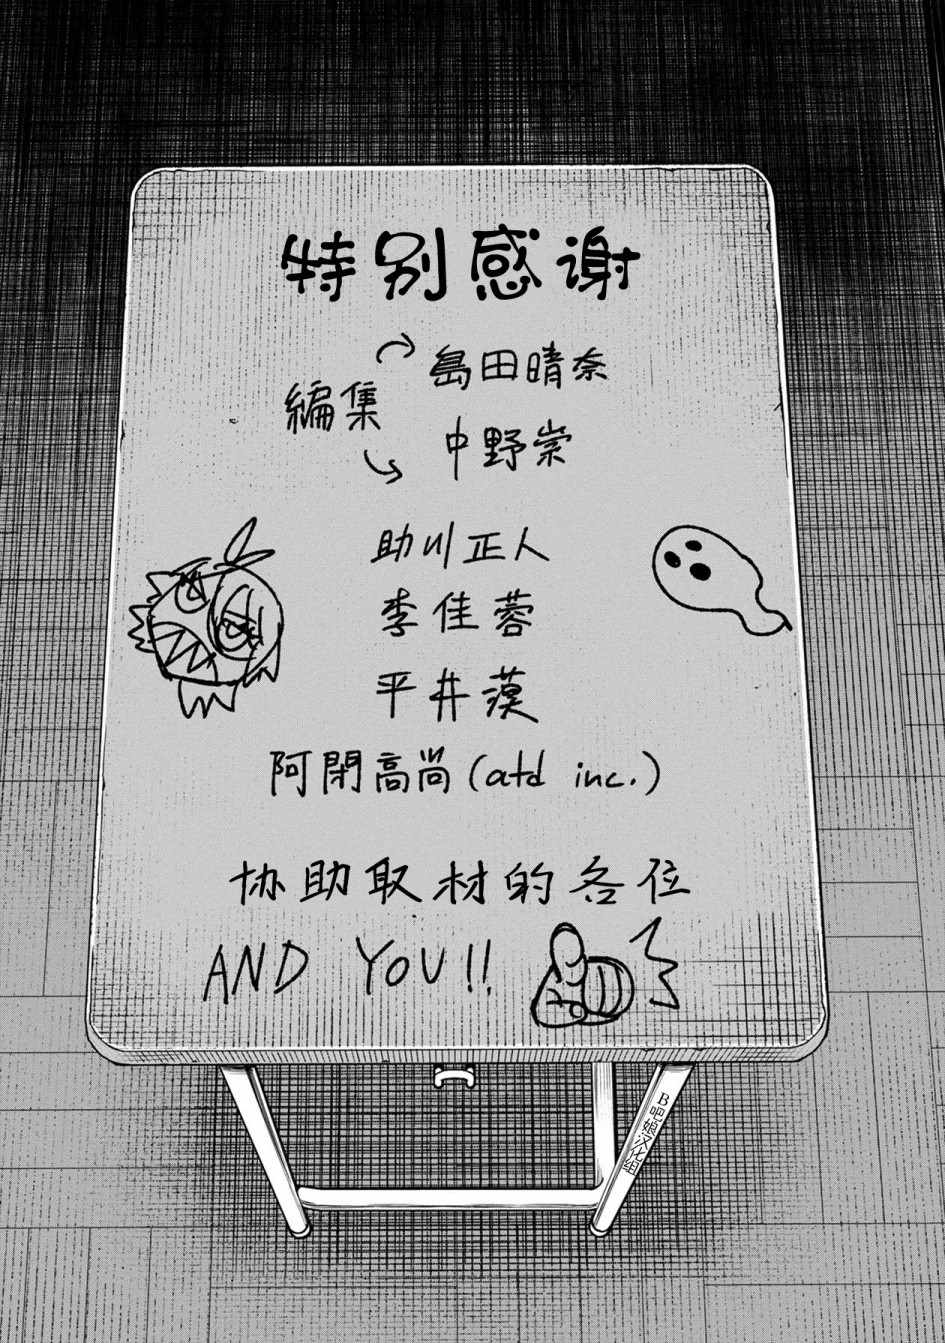 特别感谢
編集
島田晴奈
中野崇
助川正人
李佳蓉
平井漠
阿閉高尚(atd inc.)
协助取材的各位
AND YOU!!
B吧娘汉化组